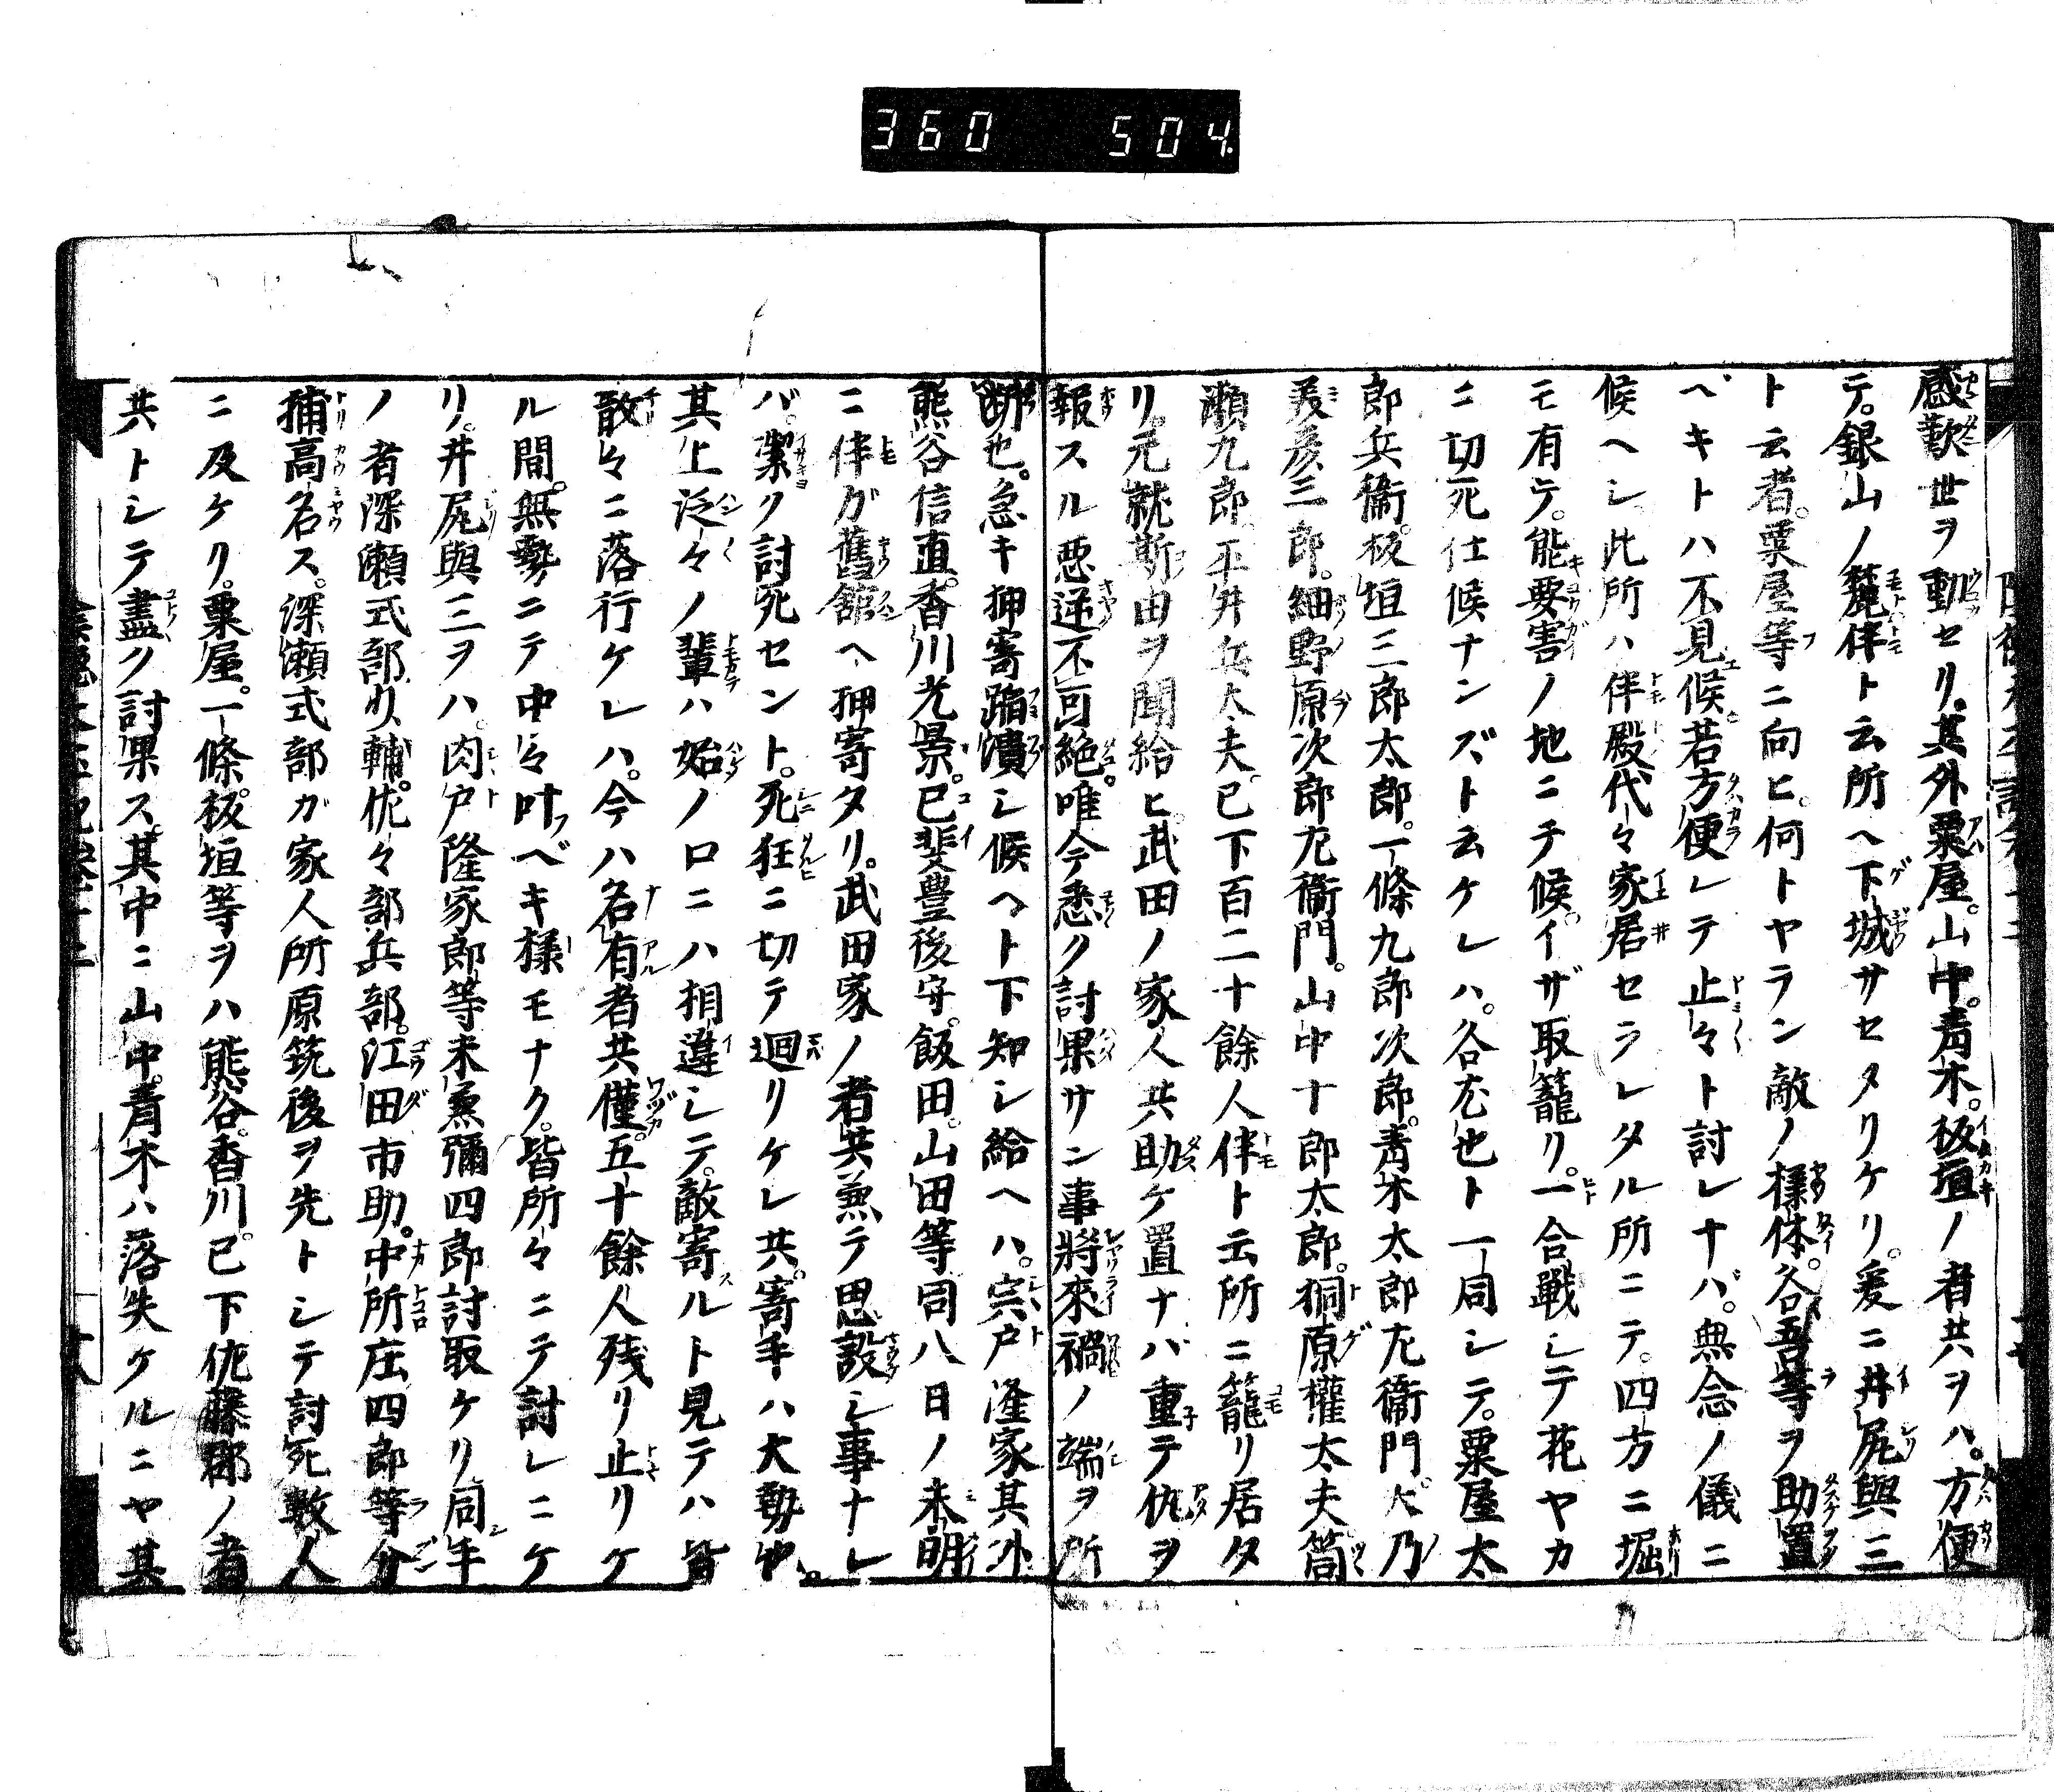 360 504
感歎世ヲ動セリ。其外粟屋。山中。青木。板垣ノ者共ヲハ。方便
テ。銀山ノ麓伴ト云所ヘ下城サセタリケリ。爰ニ井尻與三
ト云者。粟屋等ニ向ヒ。何トヤラン敵ノ様体。各吾等ヲ助置
ベキトハ不見候。若方便レテ止々ト討レナバ。無念ノ儀ニ
候ヘシ。此所ハ伴殿代々家居セラレタル所ニテ。四方ニ堀
モ有テ。能要害ノ地ニチ候。イザ取籠リ。一合戰シテ花ヤカ
ニ切死仕候ナンズト云ケレハ。各尤也ト一同シテ。粟屋太
郎兵衞。板垣三郎太郎。一條九郎次郎。青木太郎左衞門大乃
美彦三郎。細野原次郎左衞門。山中十郎太郎。桐原權太夫筒
瀬九郎。平井兵太夫。已下百二十餘人伴ト云所ニ籠リ居タ
リ。元就斯由ヲ聞給ヒ。武田ノ家人共助ケ置ナバ重テ仇ヲ
報スル悪逆不可絶。唯今悉ク討果サン事將來禍ノ端ヲ所
断也。急キ押寄蹈潰シ候ヘト下知シ給ヘハ。宍戸隆家其外
熊谷信直。香川光景。已斐豊後守。飯田。山田等同八日ノ未明
ニ伴ガ舊舘ヘ押寄タリ。武田家ノ者共兼テ思設シ事ナレ
バ。潔ク討死セント。死狂ニ切テ廻リケレ共。寄手ハ大勢也。
其上泛々ノ輩ハ始ノ口ニハ相違シテ。敵寄ルト見テハ皆
散々ニ落行ケレハ。今ハ名有者共僅五十餘人残リ止リケ
ル間。無勢ニテ中々叶ベキ様モナク。皆所々ニテ討レニケ
リ。井尻與三ヲハ。肉戸隆家郎等末兼彌四郎討取ケリ。同手
ノ者深瀬式部少輔。佐々部兵部。江田市助。中所庄四郎等分
捕高名ス。深瀬式部ガ家人所原筑後ヲ先トシテ討死数人
ニ及ケリ。粟屋。一條。板垣等ヲハ熊谷。香川。已下佐藤郡ノ者
共トシテ盡ク討果ス。其中ニ山中。青木ハ落失ケルニヤ其